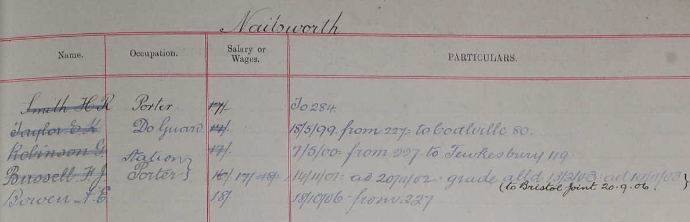 Nailsworth
Name. Occupation. Salary or Wages. PARTICULARS.
Smith H R Porter 17/ To 284.
Taylor E H Do Guard 14/ 18/5/99. from 227- to Coalville 80.
Robinson 17/ 7/5/00- from 227 to Tewkesbury 119.
Station
Russell F J Porter 16/ 17/ 18/ 14/11/01. ad 20/11/02. grade altd
(to Bristol Joint 20.9.06.)
Bowen A E 18/ 18/10/06 - from 227